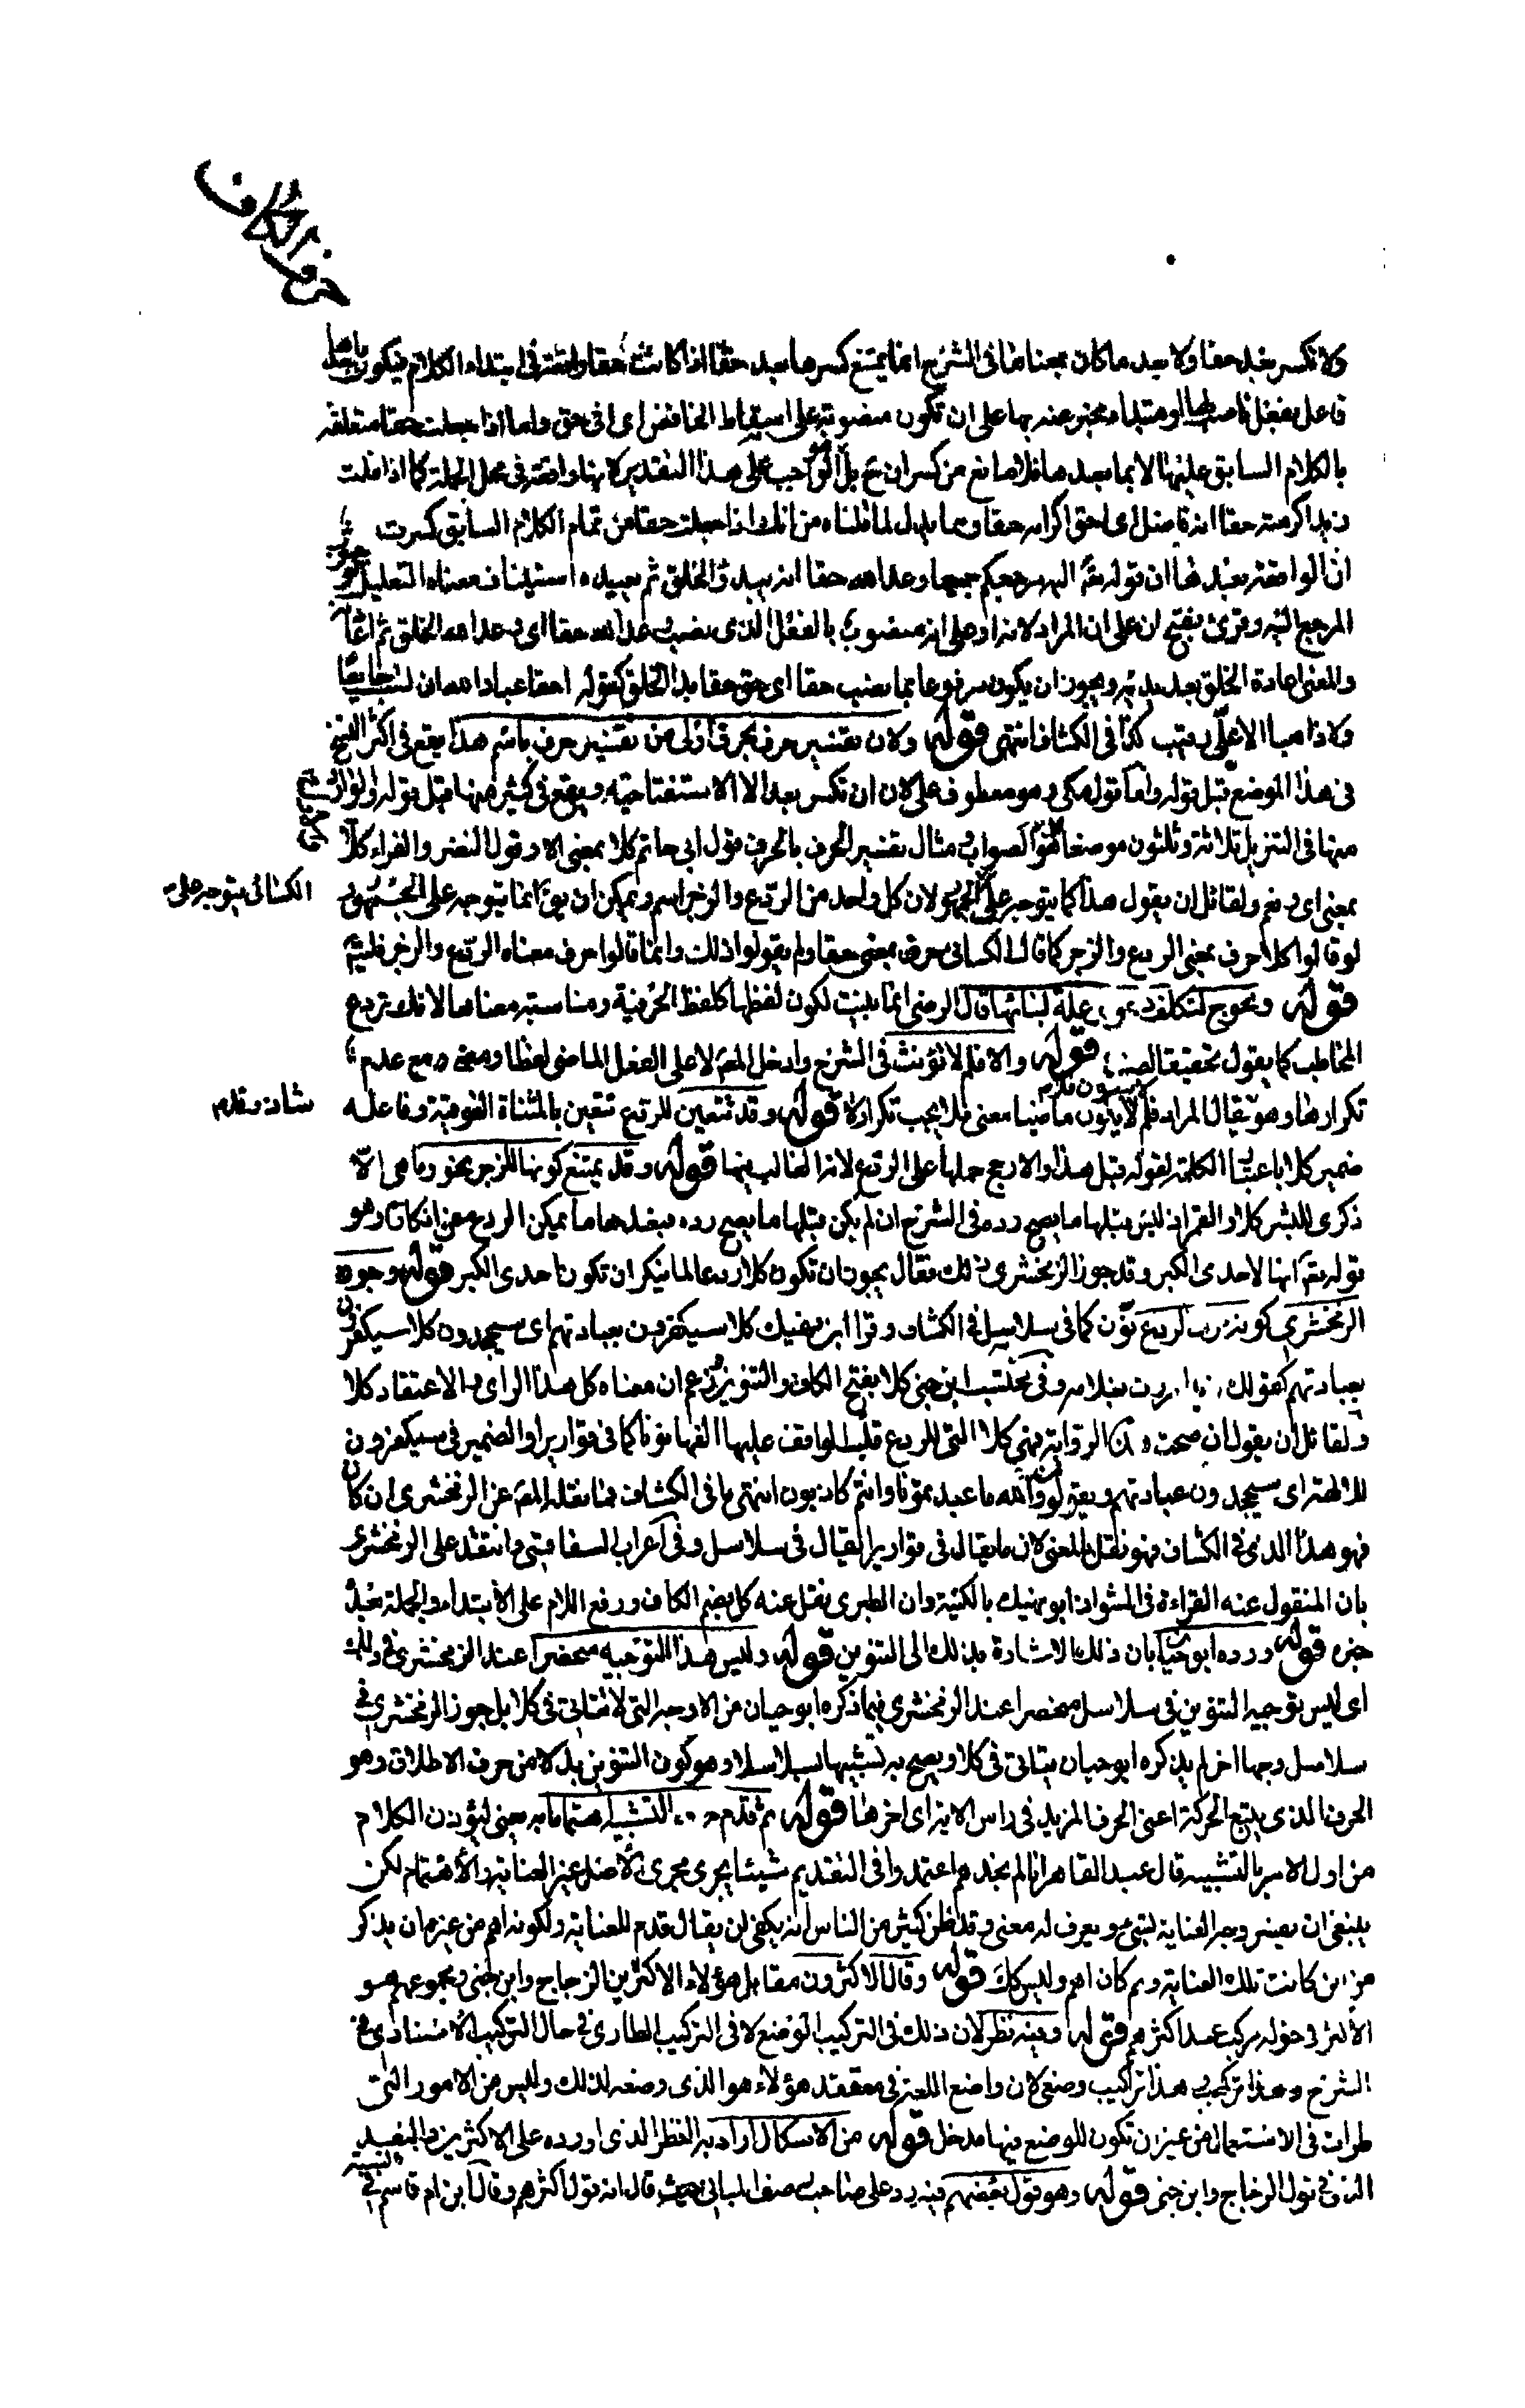 حرف الكاف
ولا تكسر بعد حقا ولا بعد ما كان بمعناها في الشرح انما يمتنع كسرها بعد حقا اذا كانت حقا واقعة في ابتداء الكلام فيكون ما بعدها
فاعل بفعل ناصب لها او مبتداء مخبر عنه بها على ان تكون منصوبة على اسقاط الخافض اى في حق واما اذا جعلت حقا متعلقة
بالكلام السابق عليها لا بما بعدها فلا مانع من كسر ان ح بل هو الواجب على هذا التقدير لانها واقعة في محل الجملة كما اذا قلت
زيد اكرمته حقا انه فاضل اى احق اكرامه حقا ومما يدل لما قلناه من انك اذا جعلت حقا من تمام الكلام السابق كسرت
ان الواقعة بعدها ان قوله تعالى اليه مرجعكم جميعا وعد الله حقا انه يبدؤ الخلق ثم يعيده استيناف معناه التعليل لوجوب
المرجع اليه وقرئ بفتح ان على ان المراد لانه او على انه منصوب بالفعل الذى نصب وعد الله حقا اى وعد الله الخلق ثم اعادته
والمعنى اعادة الخلق بعد بدئه ويجوز ان يكون مرفوعا بما نصب حقا اى حق حقا بدا الخلق كقوله احقا عباد الله ان لست جائيا
ولا ذاهبا الا على رقيب كذا في الكشاف انتهى قوله ولان تفسير حرف بحرف اولى من تفسير حرف باسم هذا يقع في اكثر النسخ
في هذا الموضع قبل قوله واما قول مكي وهو معطوف على لان ان تكسر بعد الا الاستفتاحية ويقع في كثير منها قبل قوله والوارد
منها في التنزيل ثلاثة وثلثون موضعا وهو الصواب ومثال تفسير الحرف بالحرف قول ابى حاتم كلا بمعنى الا وقول النضر والفراء كلا
بمعنى اى ونعم ولقائل ان يقول هذا كما يتوجه على الجمهور لان كل واحد من الردع والزجر اسم ويمكن ان يقال انما يتوجه على الجمهور
الكسائى يتوجه على
لو قالوا كلا حرف بمعنى الردع والزجر كما قال الكسائى حرف بمعنى حقا ولم يقولوا ذلك وانما قالوا حرف معناه الردع والزجر
قوله ويحوج لتكلف دعوى علة لبنائها قال الرضي انما بنيت لكون لفظها كلفظ الحرفية ومناسبة معناها لانك تردع
المخاطب عما يقول تحقيقا لضده قوله والا فلم لا نونت في الشرح وادخل المص لا على الفعل الماضى لفظا ومعنى مع عدم
تكرارها وهو يقال المراد فلم لا ينون ماضيا معنى فلا يجب تكرار لا قوله وقد تتعين للردع تتعين بالمثناة الفوقية وفاعله
ضمير كلا باعتبار الكلمة لقوله قبل هذا والارجح حملها على الردع لانه الغالب فيها قوله وقد يمتنع كونها للزجر نحو وما هى الا
ذكرى للبشر كلا والقمر اذ ليس قبلها ما يصح رده في الشرح ان لم يكن قبلها ما يصح رده فبعدها ما يمكن الردع عن انكاره وهو
قوله تعالى انها لاحدى الكبر وقد جوز الزمخشرى ذلك فقال يجوز ان تكون كلا ردعا لما ينكر ان تكون احدى الكبر قوله وجوز
الزمخشرى كونه حرف الردع نون كما في سلاسل في الكشاف وقرا ابن نهيك كلا سيكفرون بعبادتهم اى سيجحدون كلا سيكفرون
بعبادتهم كقولك زيدا مررت بغلامه وفى محتسب ابن جني كلا بفتح الكاف والتنوين وزعم ان معناه كل هذا الراى والاعتقاد كلا
ولقائل ان يقول ان صحت هذه الرواية فهي كلا التى للردع قلب الواقف عليها الفها نونا كما في قواريرا والضمير في سيكفرون
للالهة اى سيجحدون عبادتهم ويقولون والله ما عبدتمونا وانتم كاذبون انتهى ما في الكشاف فما نقله المص عن الزمخشرى ان كان
فهو هذا الذى في الكشاف فهو نقل بالمعنى لان ما يقال في قواريرا يقال في سلاسل وفى اعراب السفاقسى وانتقد على الزمخشرى
بان المنقول عنه القراءة في الشواذ ابو نهيك بالكنية وان الطبرى نقل عنه كل بضم الكاف ورفع اللام على الابتداء والجملة بعده
خبره قوله ورده ابو حيان بان ذلك الاشارة بذلك الى التنوين قوله وليس هذا التوجيه منحصرا عند الزمخشرى في ذلك
اى ليس توجيه التنوين في سلاسل منحصرا عند الزمخشرى فيما ذكره ابو حيان من الاوجه التى لا تتاتى في كلا بل جوز الزمخشرى في
سلاسل وجها اخر لم يذكره ابو حيان يتاتى في كلا ويصح به تشبيهها بسلاسلا وهو كون التنوين بدلا من حرف الاطلاق وهو
الحرف الذى يتبع الحركة اعنى الحرف المزيد في راس الاية اى اخرها قوله ثم قدم حرف التشبيه اهتماما به يعني ليؤذن الكلام
من اول الامر بالتشبيه قال عبد القاهر انا لم نجدهم اعتمدوا في التقديم شيئا يجرى مجرى الاصل غير العناية والاهتمام لكن
ينبغى ان يفسر وجه العناية لشئ ويعرف له معنى وقد ظن كثير من الناس انه يكفى ان يقال قدم للعناية ولكونه اهم من غير ان يذكر
من اين كانت تلك العناية وبم كان اهم وليس كك قوله وقال الاكثرون مقابل هؤلاء الاكثرين الزجاج وابن جنى ومجموعهم هو
الاكثر في قوله مركب عند اكثرهم قوله وفيه نظر لان ذلك في التركيب الوضعى لا في التركيب الطارى في حال التركيب الاسنادى في
الشرح وهذا تركيب هذا تركيب وضعى لان واضع اللغة في معتقد هؤلاء هو الذى وضعه لذلك وليس من الامور التى
طرات في الاستعمال من غير ان تكون للوضع فيها مدخل قوله من الاشكال اراد به النظر الذى اورده على الاكثرين والبعد
الذى في قول الزجاج وابن جنى قوله وهو قول بعضهم فيه رد على صاحب رصف المبانى حيث قال انه قول اكثرهم وقال ابن ام قاسم في